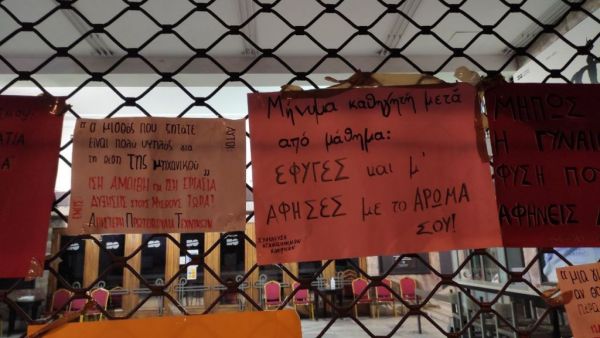 ΤΙΑ
"Ο μισθός που ζητάτε
είναι πολύ υψηλός για
τη θέση ΤΗΣ μηχανικού"
ΙΣΗ ΑΜΟΙΒΗ για ΙΣΗ ΕΡΓΑΣΙΑ
ΑΥΞΗΣΕΙΣ ΣΤΟΥΣ ΜΙΣΘΟΥΣ ΤΩΡΑ!
ΑΡΙΣΤΕΡΗ ΠΡΩΤΟΒΟΥΛΙΑ ΤΕΧΝΙΚΩΝ
ΑΥΤΟΙ:
ΕΜΕΙΣ
Μήνυμα καθηγητή μετά
από μάθημα:
ΕΦΥΓΕΣ και μ'
ΑΦΗΣΕΣ με το ΑΡΩΜΑ
ΣΟΥ!
ΜΗΠΩΣ
Η ΓΥΝΑΙ
ΦΥΣΗ ΠΟΥ
ΑΦΗΝΕΙΣ
"μια
αν θα